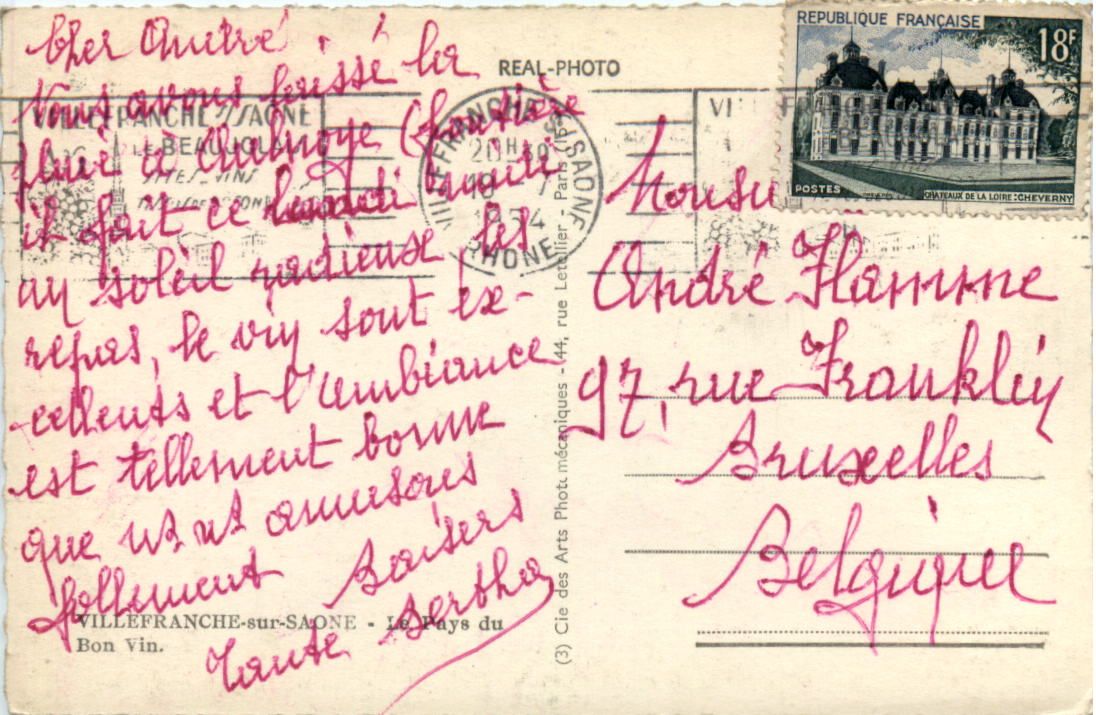 Cher André,
Nous avons laissé la
pluie à Aulnoye (frontière
il fait ce lundi midi
un soleil radieuse les
repas, le vin sont ex-
cellents et l'ambiance
est tellement bonne
que ns ns amusons
follement Baisers
Tante Bertha
VILLEFRANCHE-sur-SAONE - Le Pays du
Bon Vin.
REAL-PHOTO
VILLEFRANCHE S/SAONE
LE BEAUJOLAIS
SITES - VINS
VILLEFRANCHE S/SAONE
20H
1954
RHONE
(3) Cie des Arts Photomécaniques - 44, rue Letellier, Paris (15e)
REPUBLIQUE FRANÇAISE
18F
POSTES
CHATEAUX DE LA LOIRE : CHEVERNY
Monsieur
André Flamme
97, rue Franklin
Bruxelles
Belgique